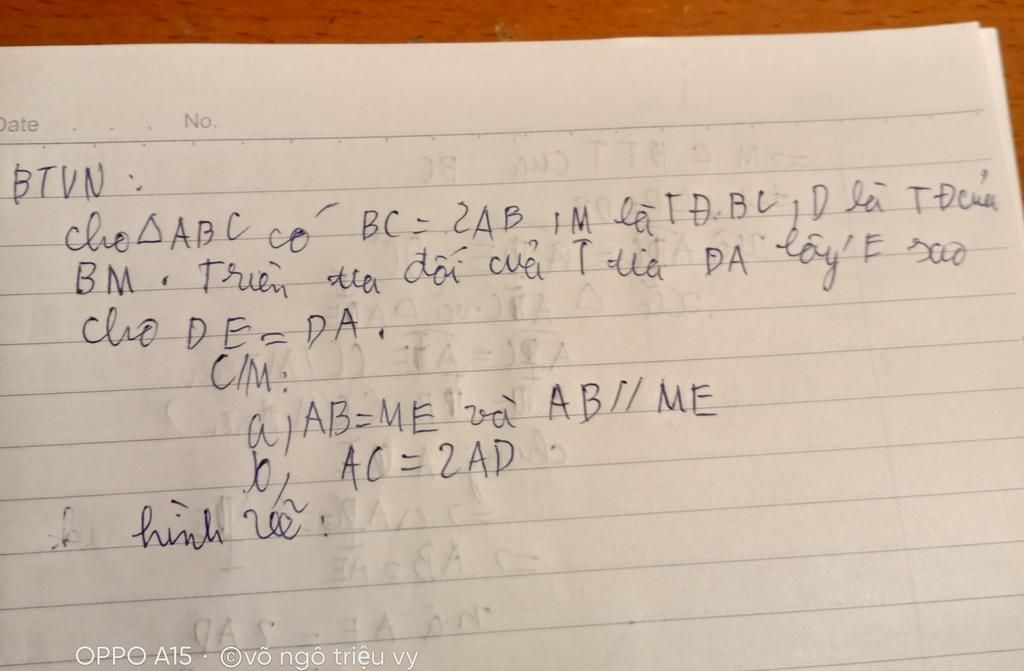 Date . . . . No.
BTVN :
cho △ABC có BC = 2AB , M là TĐ. BC , D là TĐ của
BM . Trên tia đối của T tia DA lấy E sao
cho DE = DA .
C/M :
a, AB = ME và AB // ME
b, AC = 2AD
hình vẽ :
OPPO A15 · ©võ ngô triệu vy